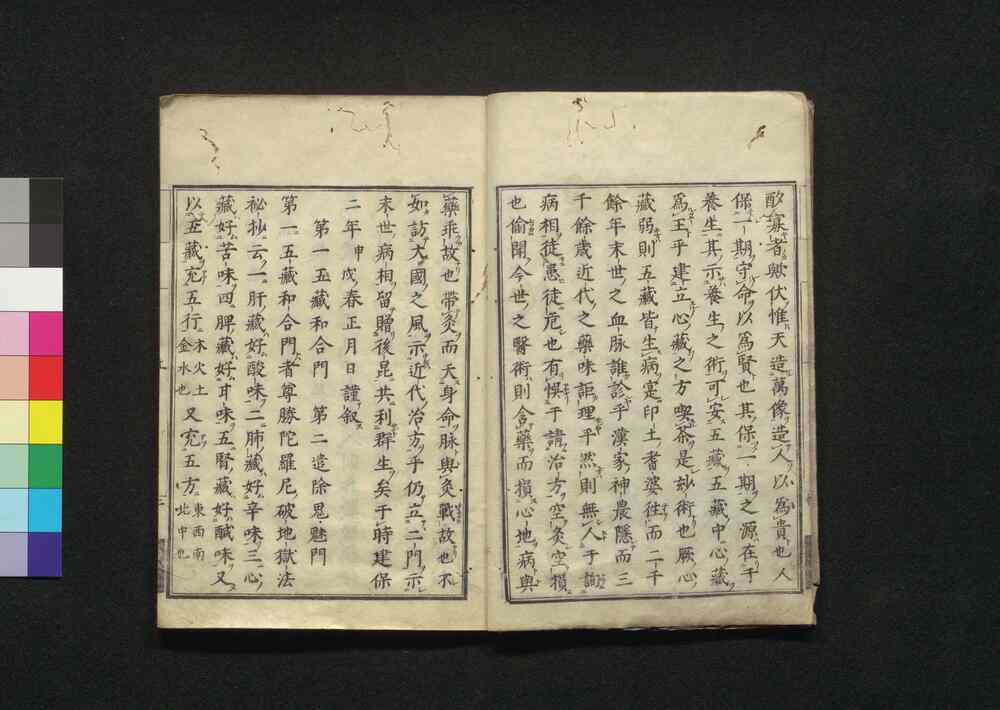 酌寡者歟伏惟天造萬像造人以爲貴也人
保一期守命以爲賢也其保一期之源在于
養生其示養生之術可安五藏五藏中心藏
爲王乎建立心藏之方喫茶是玅術也厥心
藏弱則五藏皆生病寔印土耆婆往而二千
餘年末世之血脉誰診乎漢家神農隱而三
千餘歳近代之藥味詎理乎然則無人于詢
病相徒患徒危也有悞于請治方空灸空損
也偷聞今世之醫術則含藥而損心地病與
藥乖故也帶灸而夭身命脉與灸戰故也不
如訪大國之風示近代治方乎仍立二門示
末世病相留贈後昆共利群生矣于時建保
二年申戌春正月日謹叙
第一五藏和合門 第二遣除鬼魅門
第一五藏和合門者尊勝陀羅尼破地獄法
祕抄云一肝藏好酸味二肺藏好辛味三心
藏好苦味四脾藏好甘味五腎藏好醎味又
以五藏充五行木火土金水也又充五方東西南北中也